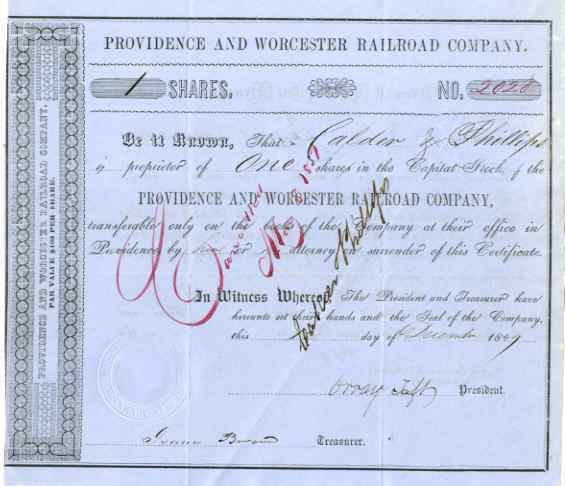 PROVIDENCE AND WORCESTER RAILROAD COMPANY.
1 SHARES. NO. 2028
Be it Known, That Calder & Phillips
is proprietor of One shares in the Capital Stock of the
PROVIDENCE AND WORCESTER RAILROAD COMPANY,
transferable only on the books of the Company at their office in
Providence by or attorney on surrender of this Certificate.
In Witness Whereof, The President and Treasurer have
hereunto set their hands and the Seal of the Company,
this day of December 1849
Orray Taft President.
Treasurer.
PROVIDENCE AND WORCESTER RAILROAD COMPANY.
PAR VALUE $100 PER SHARE.
Cancelled
May 1851
Calder & Phillips